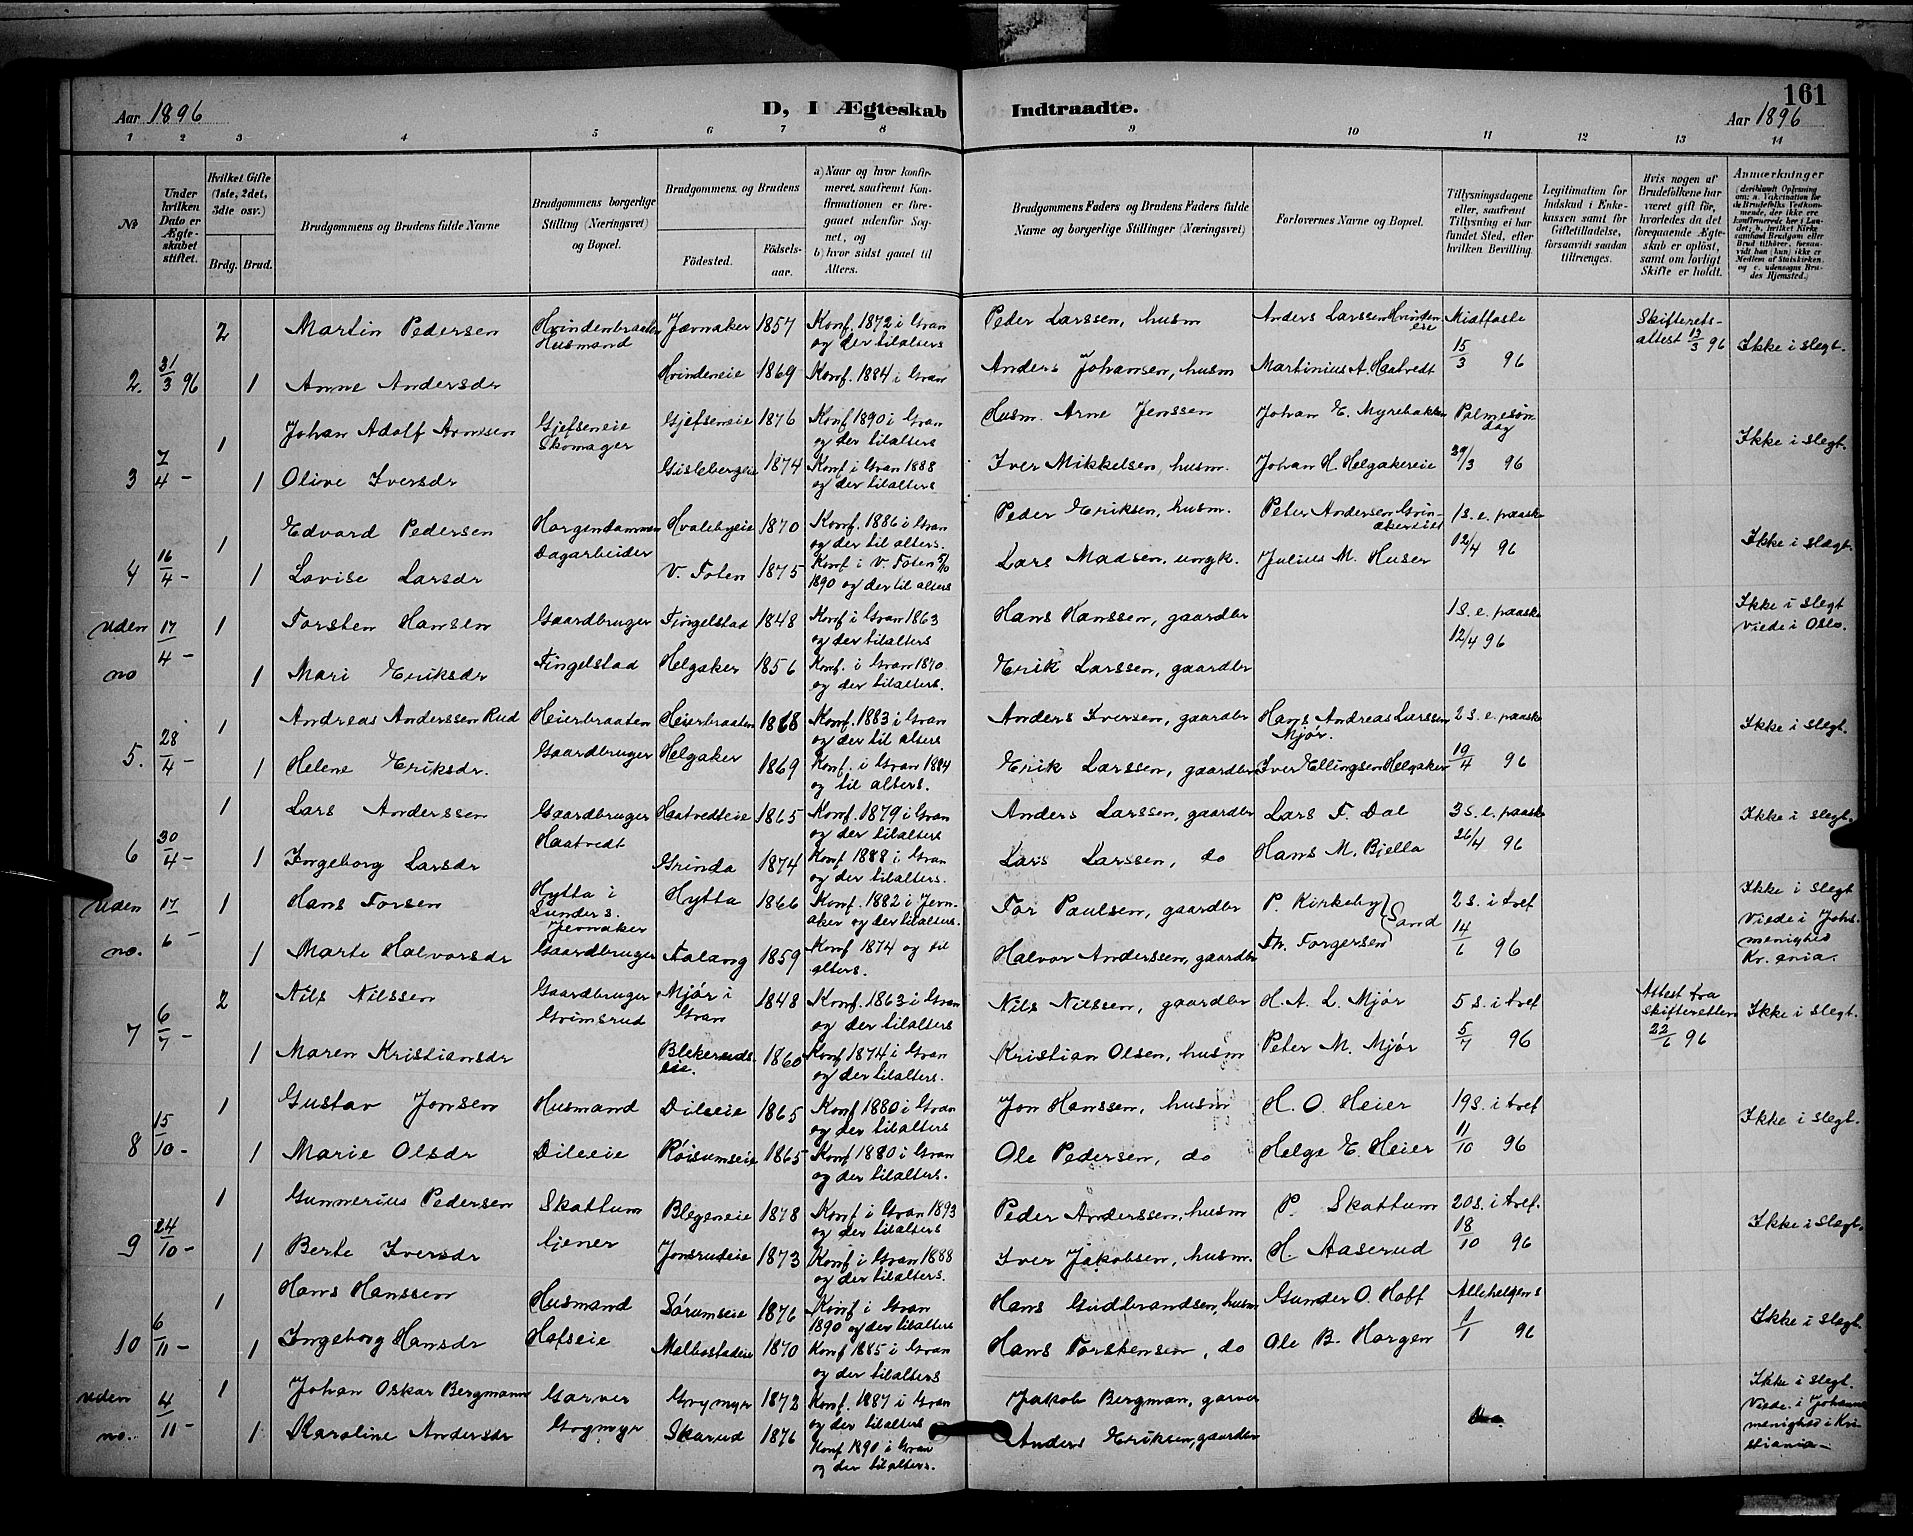 161
Aar 1896
D, I Ægteskab Indtraadte.
Aar 1896
1 2 3 4 5 6 7 8 9 10 11 12 13 14
No
Under hvilken Dato er Ægteskabet stiftet.
Hvilket Gifte (1ste, 2det, 3die osv.)
Brdg. Brud.
Brudgommens og Brudens fulde Navne
Brudgommens borgerlige Stilling (Næringsvei) og Bopæl.
Brudgommens og Brudens
Födested. Födsels-aar.
a) Naar og hvor konfirmeret, saafremt Konfirmationen er foregaaet udenfor Sognet, og
b) hvor sidst gaaet til Alters.
Brudgommens Faders og Brudens Faders fulde Navne og borgerlige Stillinger (Næringsvei)
Forlovernes Navne og Bopæl.
Tillysningsdagene eller, saafremt Tillysning ei har fundet Sted, efter hvilken Bevilling.
Legitimation for Indskud i Enkekassen samt for Giftetilladelse, forsaavidt saadan tiltrænges.
Hvis nogen af Brudefolkene har været gift før, hvorledes da det foregaaende Ægteskab er oplöst, samt om lovligt Skifte er holdt.
Anmærkninger
2. 31/3 96 2 Martin Pedersen Hvindenbraaten Husmand Jævnaker 1857 Konf. 1872 i Gran og der tilalters Peder Larssen, husm Anders Larssen Hvindeneie Midtfaste 15/3 96 Skifterets-attest 13/3 96 Ikke i slegt.
1 Anne Andersdr Hvindeneie 1869 Konf. 1884 i Gran Anders Johansen, husm Martinius A. Haatvedt
3 7/4 - 1 Johan Adolf Arnesen Gjefseneie Skomager Gjefseneie 1876 Konf. 1890 i Gran og der tilalters Husm. Arne Jenssen Johan E. Myrebakken Palmesøndag 29/3 96 Ikke i slegt.
1 Olive Iversdr Gislebergeie 1874 Konf. i Gran 1888 og der tilalters Iver Mikkelsen, husm. Johan H. Helgakereie
4 16/4 - 1 Edvard Pedersen Horgendammen Dagarbeider Hvalebyeie 1870 Konf. 1886 i Gran og der til alters. Peder Eriksen, husm. Peter Andersen 1 s. e. paaske 12/4 96 Ikke i slegt.
1 Lovise Larsdr V. Toten 1875 Konf. i V. Toten 5/10 1890 og der til alters Lars Madsen, ungk. Julius M. Huser
uden no 17/4 - 1 Torsten Hansen Gaardbruger Tingelstad Tingelstad 1848 Konf. i Gran 1863 og der tilalters Hans Hanssen, gaardbr 1 s. e. paaske 12/4 96 Ikke i slegt Viede i Oslo.
1 Mari Eriksdr Helgaker 1856 Konf. i Gran 1870 og der tilalters. Erik Larssen, gaardbr
5. 28/4 - 1 Andreas Anderssen Rud Heierbraaten Gaardbruger Heierbraaten 1868 Konf. 1883 i Gran og der til alters Anders Iversen, gaardbr Hans Andreas Larssen Mjør. 2 s. e. paaske 19/4 96 Ikke i slegt.
1 Helene Eriksdr. Helgaker 1869 Konf. i Gran 1884 og til alters. Erik Larssen, gaardbr Iver Ellingsen Helgaker
6 30/4 - 1 Lars Anderssen Gaardbruger Haatvedt Haatvedteie 1865 Konf. 1879 i Gran og der tilalters Anders Larssen, gaardbr Lars T. Dal 3 s. e. paaske 26/4 96 Ikke i slegt.
1 Ingeborg Larsdr Grinda 1874 Konf. 1888 i Gran og der tilalters. Lars Larssen, do Hans M. Bjella
uden no. 17/6 - 1 Hans Torsen Hytta i Lunder s. Jevnaker Gaardbruger Hytta 1866 Konf. 1882 i Jevnaker og der tilalters. Tor Paulsen, gaardbr P. Kirkeby Sand 2 s. i tref 14/6 96 Ikke i slegt Viede i Johs. menighed Kr.ania.
1 Marte Halvorsdr Aalang 1859 Konf 1874 og til alters. Halvor Anderssen, gaardbr Th. Torgersen
7 6/7 - 2 Nils Nilssen Gaardbruger Grimsrud Mjør i Gran 1848 Konf. 1863 i Gran og der tilalters Nils Nilssen, gaardbr H. A. L. Mjør 5 s. i tref 5/7 96 Attest fra skifteretten 22/6 96 Ikke i slegt.
1 Maren Kristiansdr Blekerudseie. 1860 Konf 1874 i Gran og der tilalters. Kristian Olsen, husm Peter M. Mjør
8 15/10 - 1 Gustav Jonsen Husmand Dileeie Dileeie 1865 Konf 1880 i Gran og der tilalters Jon Hanssen, husm H. O. Heier 19 s. i tref 11/10 96 Ikke i slegt.
1 Marie Olsdr Røisumseie 1865 Konf 1880 i Gran og der tilalters. Ole Pedersen, do Helge E. Heier
9 24/10 - 1 Gunnerius Pedersen Skattum tjener Blegeneie 1878 Konf i Gran 1893 og der tilalters Peder Anderssen, husm P. Skattum 20 s. i tref. 18/10 96 Ikke i slegt.
1 Berte Iversdr Jonsrudeie 1873 Konf i Gran 1888 og der tilalters. Iver Jakobsen, husm. H. Aaserud
10 6/11 - 1 Hans Hanssen Husmand Hofseie Sørumseie 1876 Konf i Gran 1890 og der tilalters Hans Gudbrandsen, husm Gunder O. Hoff Allehelgens 1/1 96 Ikke i slegt.
1 Ingeborg Hansdr Melbostadeie 1870 Konf 1885 i Gran og der tilalters Hans Torstensen, do Ole B. Horgen
uden no. 4/11 - 1 Johan Oskar Bergmann Garver Grymyr Grymyr 1872 Konf. 1887 i Gran og der tilalters Jakob Bergman, garver Ikke i slegt. Viede i Johanns menighed i Kristiania -
1 Karoline Andersdr Skarud 1876 Konf 1890 i Gran og der tilalters. Anders Eriksen, gaardbr